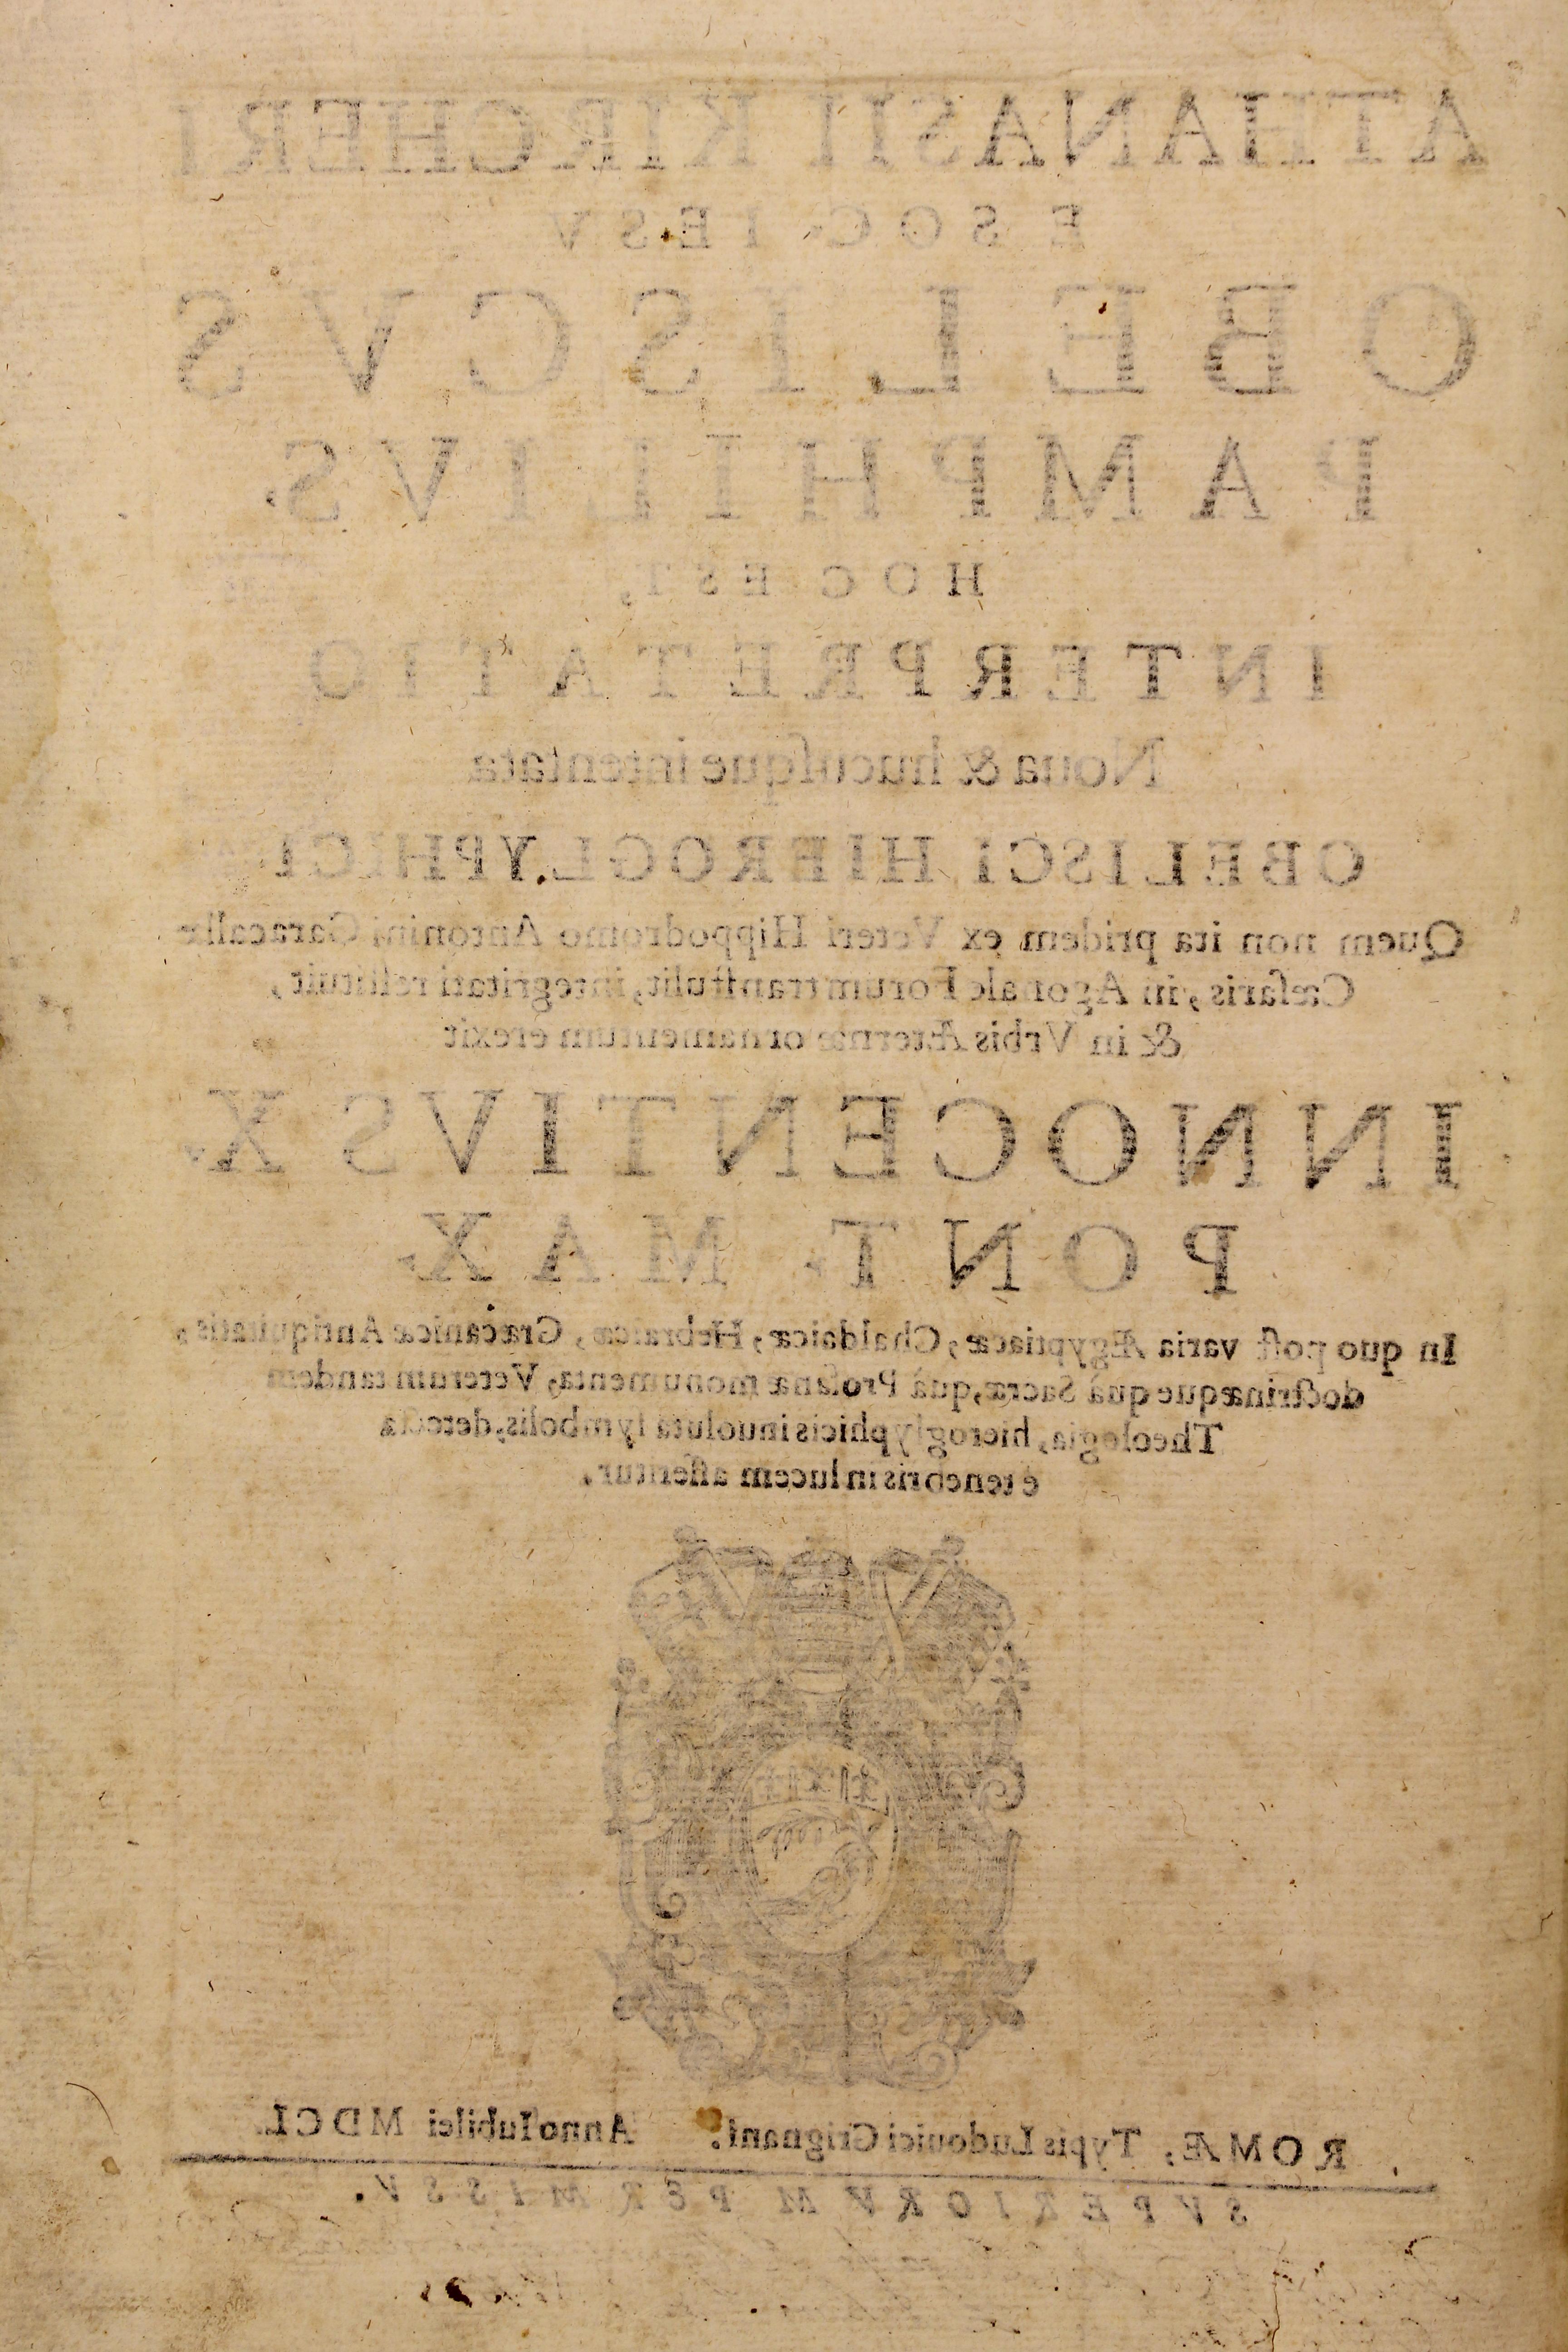 ATHANASII KIRCHERI
E SOC. IESV
OBELISCVS
PAMPHILIVS.
HOC EST,
INTERPRETATIO
Noua & hucuſque intentata
OBELISCI HIEROGLYPHICI
Quem non ita pridem ex Veteri Hippodromo Antonini Caracallæ
Cæſaris, in Agonale Forum tranſtulit, integritati reſtituit,
& in Vrbis Æternæ ornamentum erexit
INNOCENTIVS X.
PONT. MAX.
In quo poſt varia Ægyptiacæ, Chaldaicæ, Hebraicæ, Græcanicæ Antiquitatis,
doctrinæque quà Sacræ, quà Profanæ monumenta, Veterum tandem
Theologia, hieroglyphicis inuoluta ſymbolis, detecta
è tenebris in lucem aſſeritur.
ROMÆ, Typis Ludouici Grignani. Anno Iubilei MDCL.
SVPERIORVM PERMISSV.